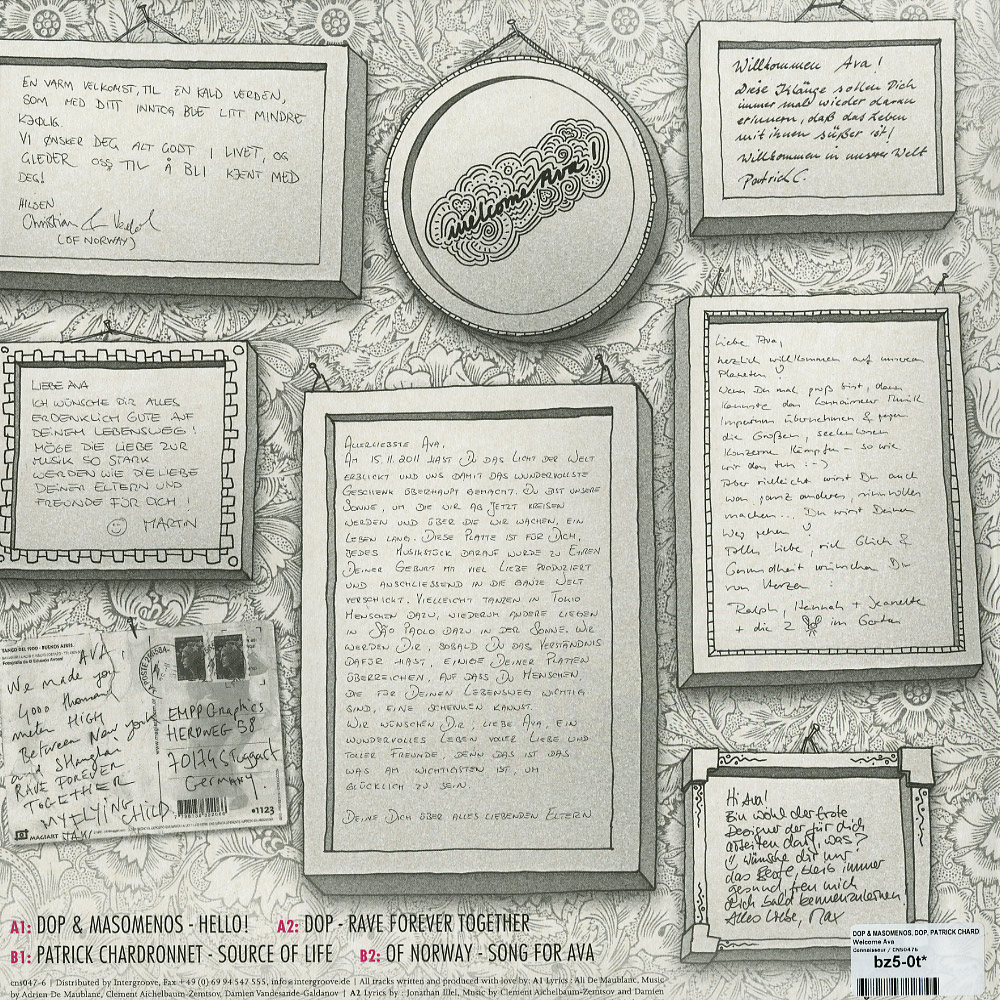 EN VARM VELKOMST, TIL EN KALD VERDEN,
SOM MED DITT INNTOG BLE LITT MINDRE
KJØLIG.
VI ØNSKER DEG ALT GODT I LIVET, OG
GLEDER OSS TIL Å BLI KJENT MED
DEG!
HILSEN
Christian
(OF NORWAY)
welcome Ava!
Willkommen Ava!
Diese Klänge sollen Dich
immer mal wieder daran
erinnern, daß das Leben
mit ihnen süßer ist!
Willkommen in unserer Welt
Patrick C.
LIEBE AVA
ICH WÜNSCHE DIR ALLES
ERDENKLICH GUTE AUF
DEINEM LEBENSWEG!
MÖGE DIE LIEBE ZUR
MUSIK SO STARK
WERDEN WIE DIE LIEBE
DEINER ELTERN UND
FREUNDE FÜR DICH!
MARTIN
ALLERLIEBSTE AVA,
AM 15.11.2011 HAST DU DAS LICHT DER WELT
ERBLICKT UND UNS DAMIT DAS WUNDERVOLLSTE
GESCHENK ÜBERHAUPT GEMACHT. DU BIST UNSERE
SONNE, UM DIE WIR AB JETZT KREISEN
WERDEN UND ÜBER DIE WIR WACHEN, EIN
LEBEN LANG. DIESE PLATTE IST FÜR DICH,
JEDES MUSIKSTÜCK DARAUF WURDE ZU EHREN
DEINER GEBURT MIT VIEL LIEBE PRODUZIERT
UND ANSCHLIESSEND IN DIE GANZE WELT
VERSCHICKT. VIELLEICHT TANZEN IN TOKIO
MENSCHEN DAZU, WIEDERUM ANDERE LIEGEN
IN SÃO PAOLO DAZU IN DER SONNE. WIR
WERDEN DIR, SOBALD DU DAS VERSTÄNDNIS
DAFÜR HAST, EINIGE DEINER PLATTEN
ÜBERREICHEN, AUF DASS DU MENSCHEN,
DIE FÜR DEINEN LEBENSWEG WICHTIG
SIND, EINE SCHENKEN KANNST.
WIR WÜNSCHEN DIR, LIEBE AVA, EIN
WUNDERVOLLES LEBEN VOLLER LIEBE UND
TOLLER FREUNDE, DENN DAS IST DAS
WAS AM WICHTIGSTEN IST, UM
GLÜCKLICH ZU SEIN.
DEINE DICH ÜBER ALLES LIEBENDEN ELTERN
Liebe Ava,
herzlich willkommen auf unserem
Planeten
Wenn Du mal groß bist, dann
kannst du das Connaisseur Musik
Imperium übernehmen & gegen
die Großen, seelenlosen
Konzerne kämpfen – so wie
wir das tun :-)
Aber vielleicht wirst Du auch
was ganz anderes, sinnvolles
machen... Du wirst Deinen
Weg gehen
Tolles Liebe, viel Glück &
Gesundheit wünschen Dir
von Herzen:
Ralph, Hannah + Jeanette
+ die 2 im Garten
TANGO DEL 1900 - BUENOS AIRES.
AVA,
We made you
4000 thousand
meter HIGH
Between New York
and Shanghai
RAVE FOREVER
TOGETHER
MY FLYING CHILD
JAW
EMPP Graphics
HERDWEG 58
70174 Stuttgart
Germany.
1123
MAGIART
Hi Ava!
Bin wohl der erste
Designer der für dich
arbeiten darf, was?
wünsche dir nur
das Beste, bleib immer
gesund, freu mich
dich bald kennenzulernen
Alles Liebe, Max
A1: DOP & MASOMENOS - HELLO! A2: DOP - RAVE FOREVER TOGETHER
B1: PATRICK CHARDRONNET - SOURCE OF LIFE B2: OF NORWAY - SONG FOR AVA
cns047-6 | Distributed by Intergroove, Fax +49 (0) 69 94 547 555, info@intergroove.de | All tracks written and produced with love by: A1 Lyrics : Ali De Maublanc, Music
by Adrien De Maublanc, Clement Aichelbaum-Zemtsov, Damien Vandesande-Galdanov | A2 Lyrics by : Jonathan Illel, Music by Clement Aichelbaum-Zemtsov and Damien
DOP & MASOMENOS, DOP, PATRICK CHARD
Welcome Ava
Connaisseur / CNS0476
bz5-0t*